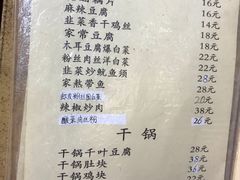 藕片 16元
麻辣豆腐 16元
韭菜香干鸡丝 18元
家常豆腐 18元
木耳豆腐爆白菜 14元
粉丝肉丝洋白菜 22元
韭菜炒鱿鱼须 22元
家熬带鱼 28元
20元
辣椒炒肉 38元
酸菜肉丝粉 26元
干锅
干锅千叶豆腐 28元
干锅肚块 38元
干锅鸡块 元